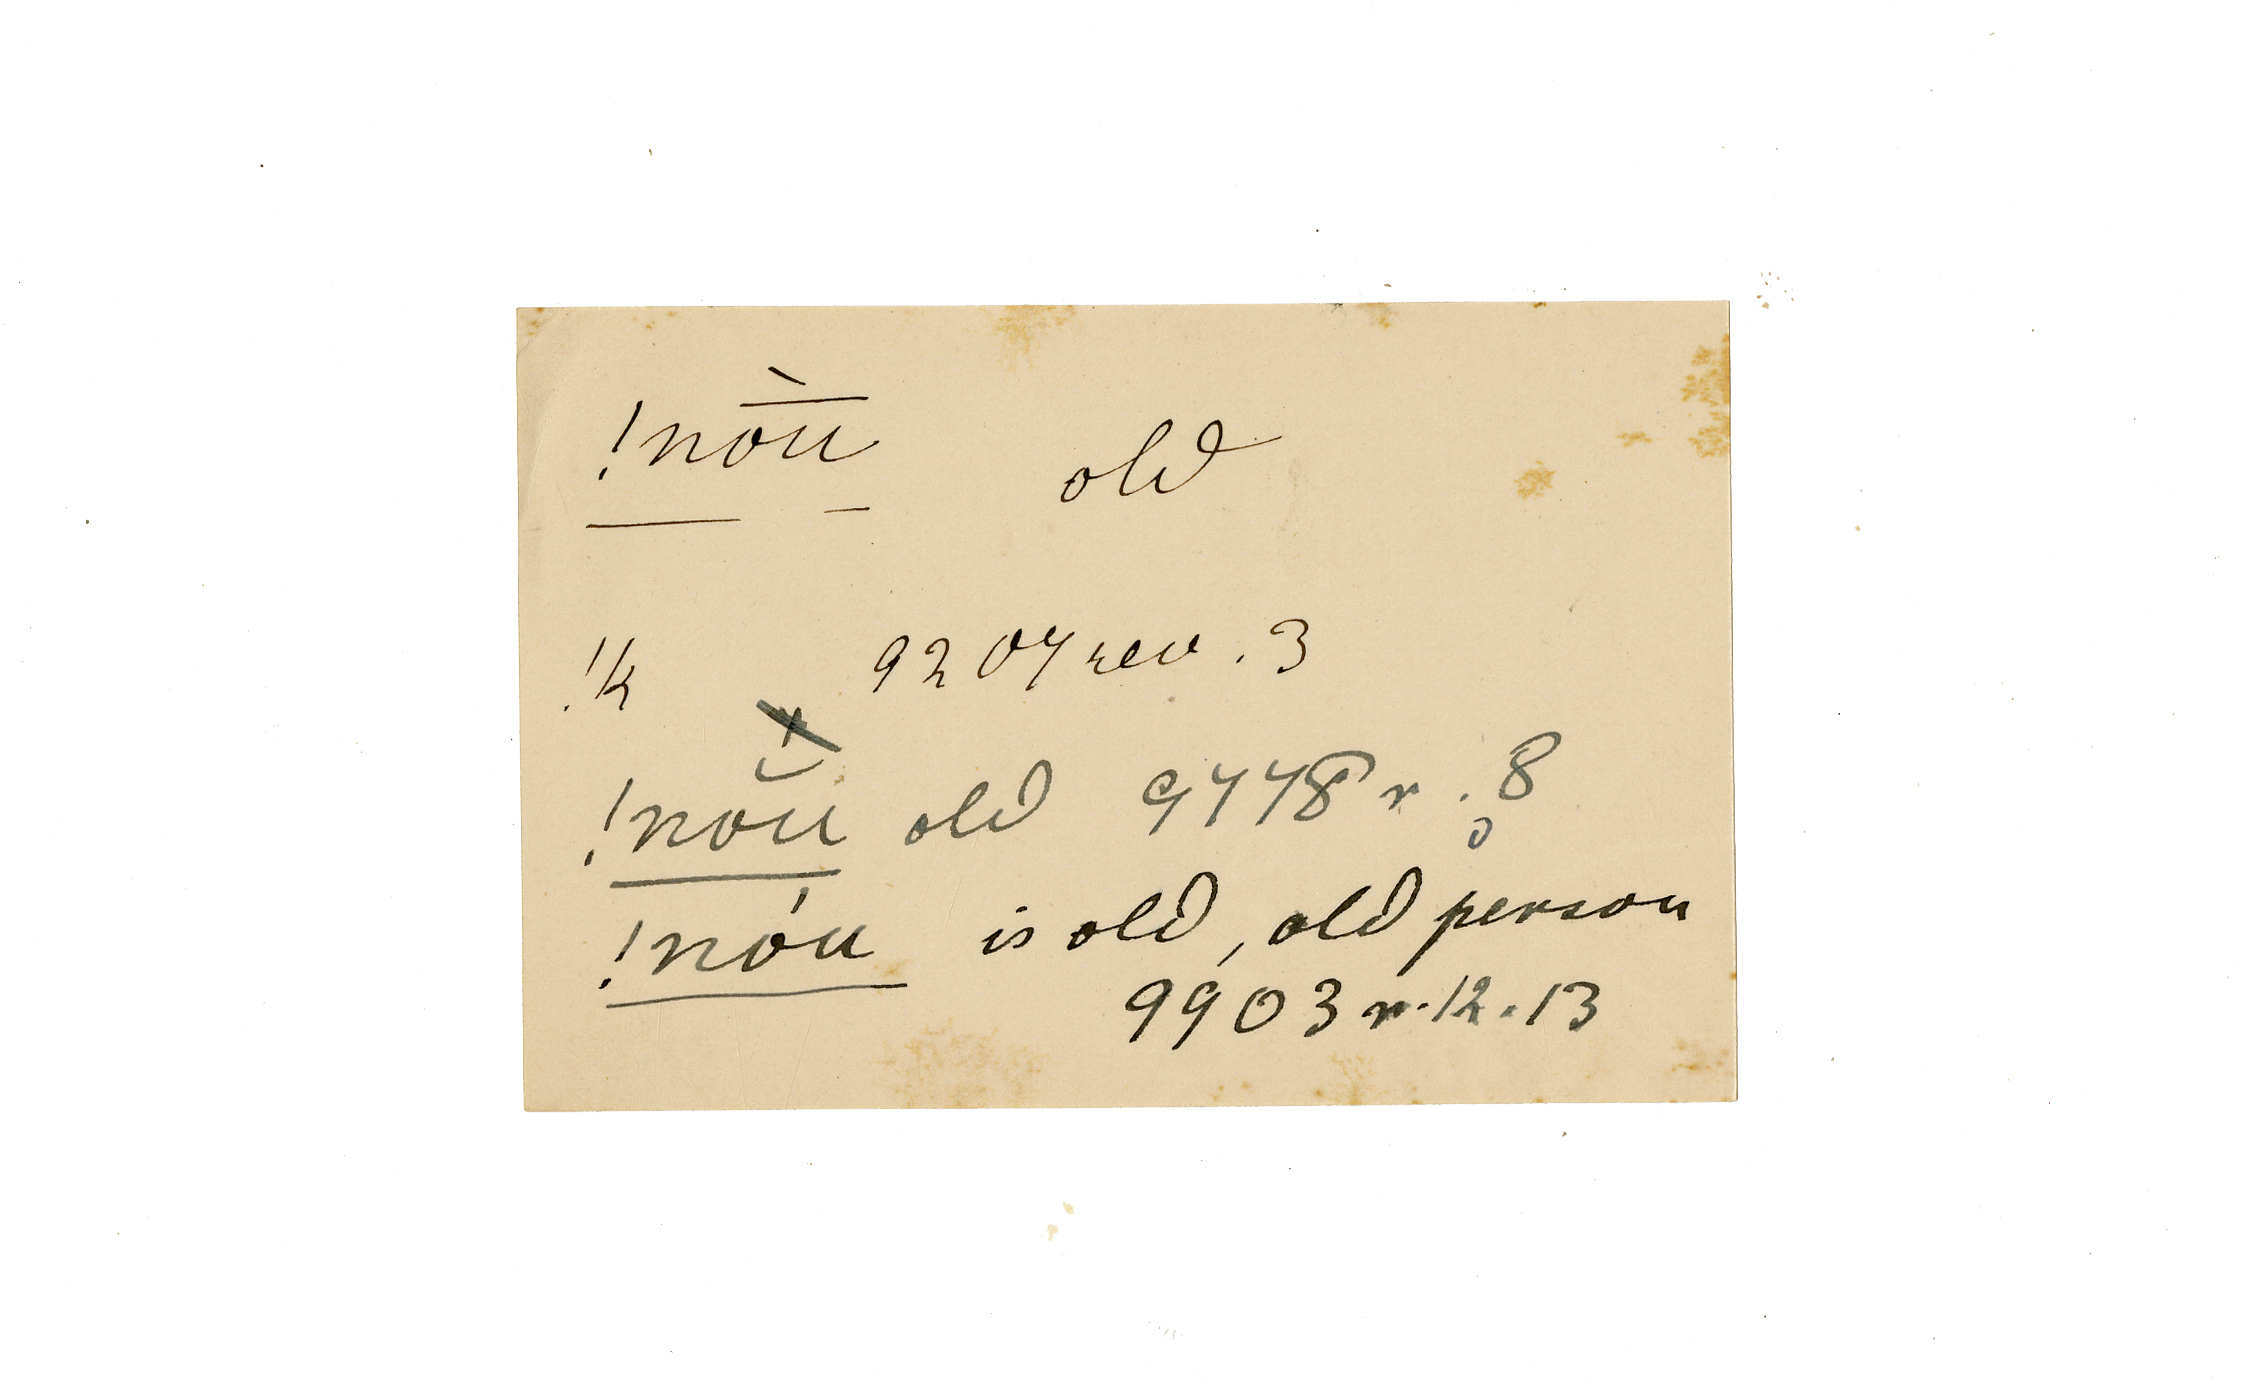 !nōù old
!k 9207 rev. 3
!nŏu old 9778 r. 8
!nóu is old, old person
9903 r. 12. 13